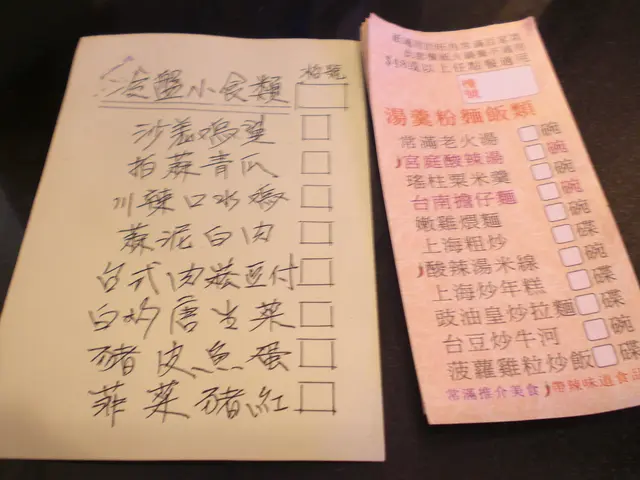 冷盤小食類
檯號
沙姜鳳爪
拍蒜青瓜
川辣口水雞
蒜泥白肉
台式肉崧豆付
白灼唐生菜
豬皮魚蛋
韮菜豬紅
檯號
湯羹粉麵飯類
常滿老火湯 碗
宮庭酸辣湯 碗
瑤柱粟米羹 碗
台南擔仔麵 碗
嫩雞煨麵 碗
上海粗炒 碟
酸辣湯米線 碗
上海炒年糕 碟
豉油皇炒拉麵 碟
台豆炒牛河 碟
菠蘿雞粒炒飯 碟
常滿推介美食 帶辣味道食品